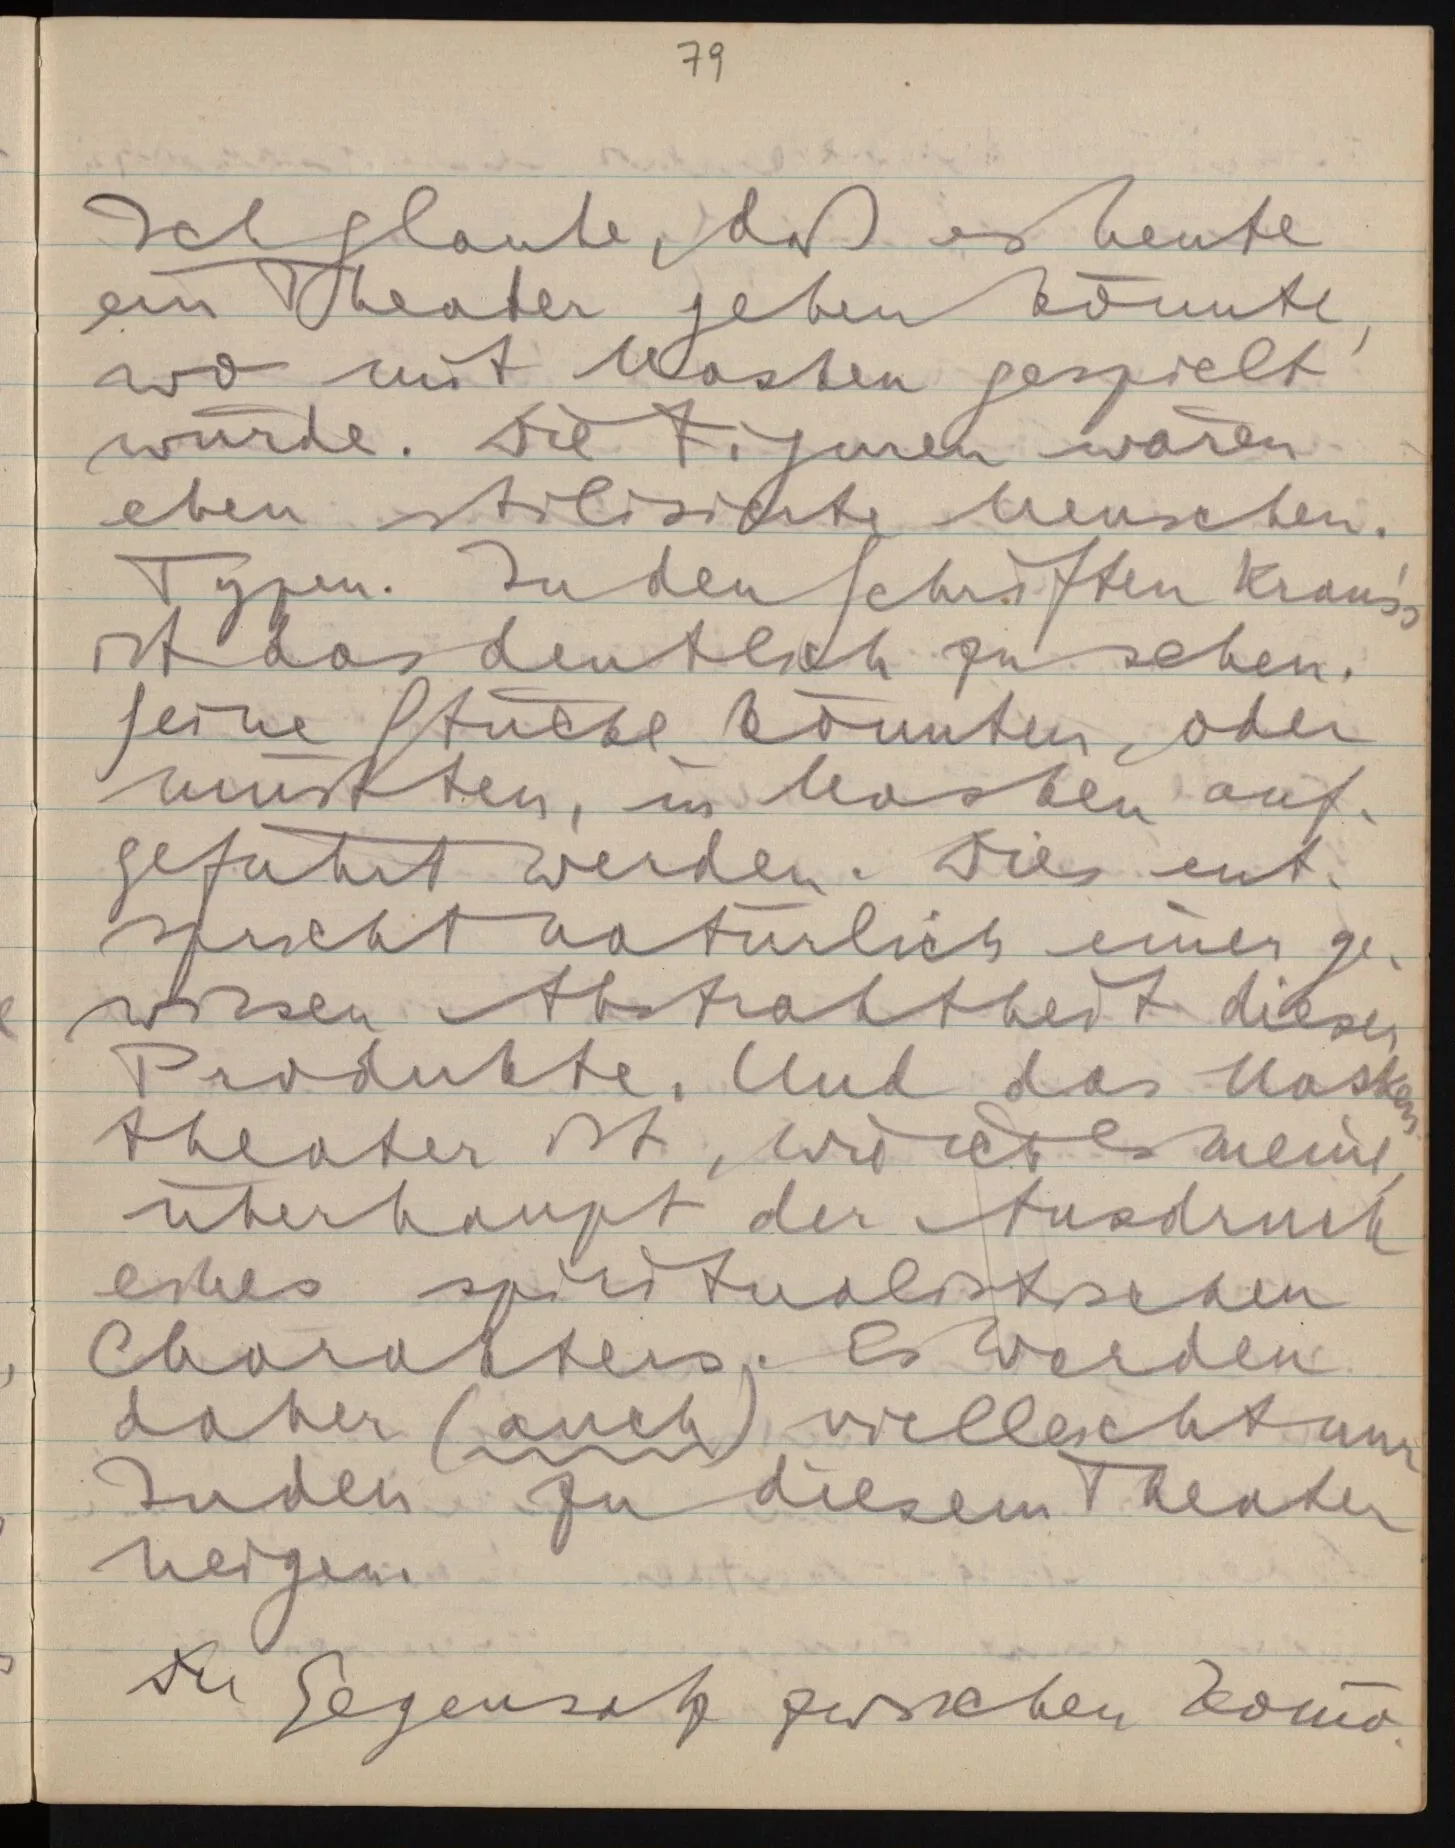 79
Ich glaube, daß es heute
ein Theater geben könnte,
wo mit Masken gespielt
würde. Die Figuren wären
eben stilisierte Menschen.
Typen. In den Schriften Kraus's
ist das deutlich zu sehen.
Seine Stücke könnten, oder
müßten, in Masken auf-
geführt werden. Dies ent-
spricht natürlich einer ge-
wissen Abstraktheit dieser
Produkte. Und das Masken
theater ist, wie ich es meine,
überhaupt der Ausdruck
eines spiritualistischen
Charakters. Es werden
daher (auch) vielleicht nur
Juden zu diesem Theater
neigen.
Der Gegensatz zwischen Komö-